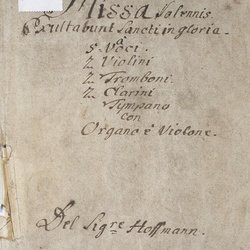 Missa Solennis.
Exultabunt Sancti in gloria.
5. Voci.
2 Violini
2 Tromboni
2 Clarini
Tympano
con
Organo è Violone.
Del Sigre Hoffmann.